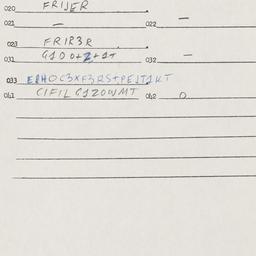 020 FRIJER
021 — 022 —
023 FRIR3R
031 G1DO+Z+1T 032 —
033 ERHOC3XF3RS+PEJT1KT
041 CIFILC1ZOWMT 042 O